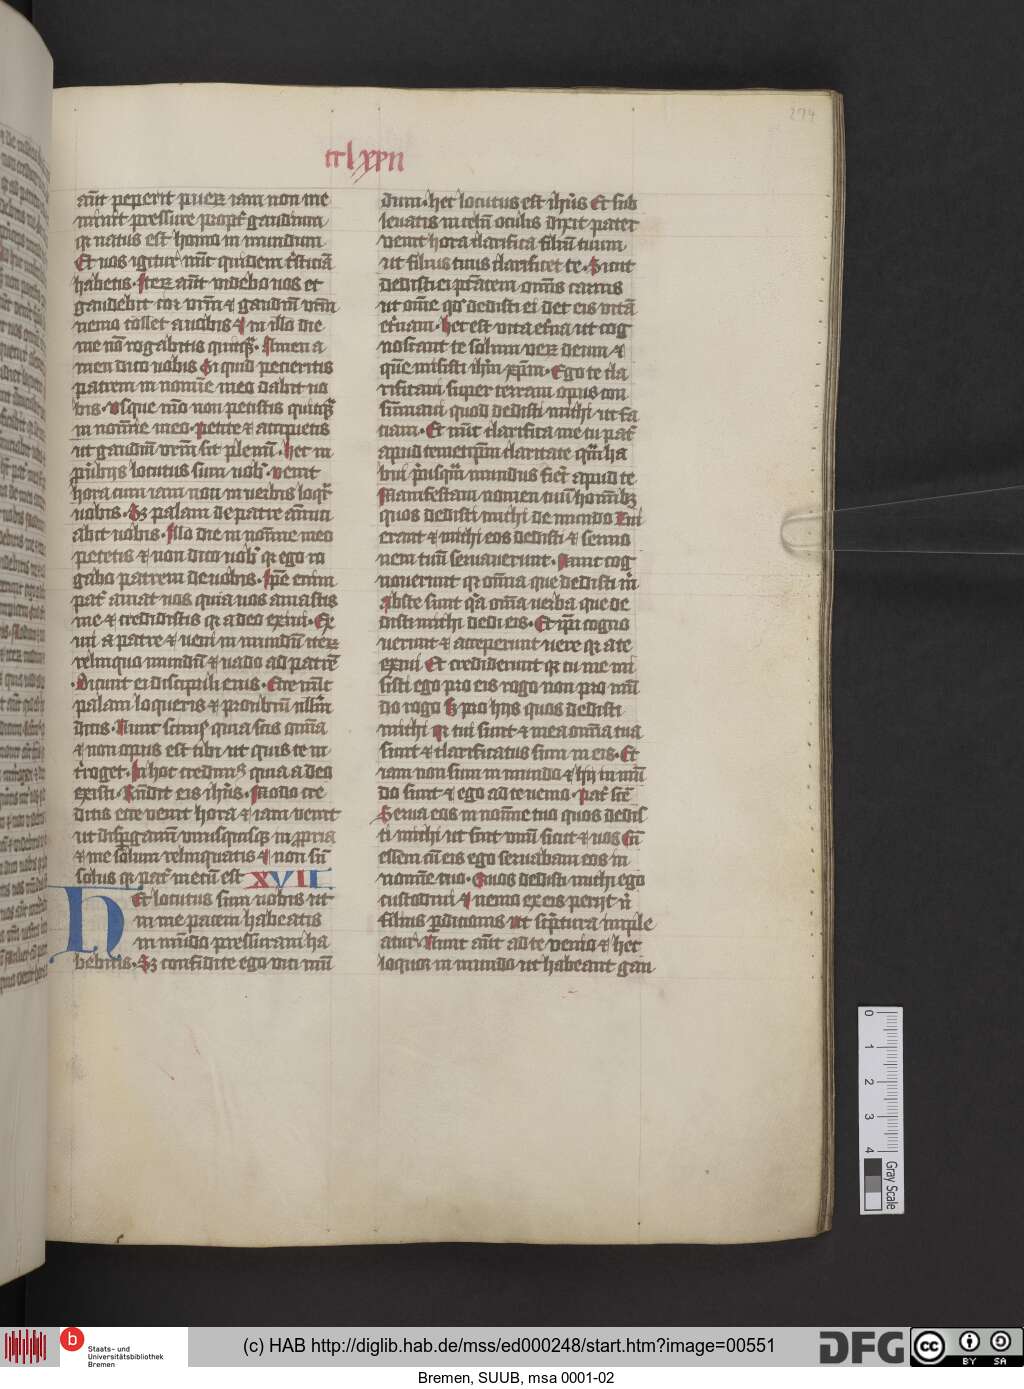 274
cclxxii
aūt peperit pueꝝ iam non me
minit pressure propt̄ gaudium
qꝛ natus est homo in mundum
Et uos igitur nūc quidem t̄sticiā
habetis. Iteꝝ aūt videbo uos et
gaudebit cor vr̄m ⁊ gaudiū vr̄m
nemo tollet a uobis ⁊ in illo die
me nō rogabitis quitqͣꝫ. Amen a
men dico uobis Si quid pecieritis
patrem in noīe meo dabit uo
bis. Vsque mō non petistis quitqͣꝫ
in noīe meo. Petite ⁊ accipietis
ut gaudiū vr̄m sit plenū. Hec in
ꝓūbijs locutus sum uob̄. Venit
hora cum iam non in uerbis loqͬ
uobis. Sꝫ palam de patre annū
abit uobis. Illo die in noīe meo
petetis ⁊ non dico uob̄ qꝛ ego ro
gabo patrem de uobis. Ipse enim
pat̄ amat uos quia uos amastis
me ⁊ credidistis qꝛ a deo exiui. Ex
iui a patre ⁊ ueni in mundū iteꝝ
relinquo mundū ⁊ uado ad patrē
Dicunt ei discipuli eius. Ecce nūc
palam loqueris ⁊ prouerbiū nullū
dicis. Nunc scimꝰ quia scis om̄ia
⁊ non opus est tibi ut quis te in
t̄roget. In hoc credimꝰ quia a deo
existi. Rn̄dit eis ih̄us. Modo cre
ditis ecce uenit hora ⁊ iam uenit
ut disꝑgamī vnusquisqꝫ in ꝓpria
⁊ me solum relinquatis ⁊ non sū
solus qꝛ pat̄ mecū est XVII
Hec locutus sum uobis ut
in me pacem habeatis
in mūdo pressuram ha
bebitis. Sꝫ confidite ego vici mū
dum. Hec locutus est ih̄us Et sub
leuatis in celū oculis dixit pater
venit hora clarifica filiū tuum
ut filius tuus clarificet te. Sicut
dedisti ei ptātem omīs carnis
ut om̄e qd̄ dedisti ei det eis vitā
et̄nam. Hec est vita et̄na ut cog
noscant te solum ueꝝ deum ⁊
quē misisti ih̄m xp̄m. Ego te cla
rificaui super terram opus con
sūmaui quod dedisti michi ut fa
ciam. Et nūc clarifica me tu pat̄
apud temetip̄m claritate quā ha
bui p̄usqͣꝫ mundus fiet̄ apud te
Manifestaui nomen tuū homībꝫ
quos dedisti michi de mundo Tui
erant ⁊ michi eos dedisti ⁊ sermo
nem tuū seruauerunt. Nunc cog
nouerunt qꝛ om̄ia que dedisti m̄
Abs te sunt qͣa om̄ia uerba que de
disti michi dedi eis. Et ip̄i cogno
uerunt ⁊ acceperunt uere qꝛ a te
exiui Et crediderunt qꝛ tu me mi
sisti ego pro eis rogo non pro mū
do rogo Sꝫ pro hijs quos dedisti
michi qꝛ tui sunt ⁊ mea om̄ia tua
sunt ⁊ clarificatus sum in eis. Et
iam non sum in mundo ⁊ hij in mū
do sunt ⁊ ego ad te uenio. Pat̄ sc̄e
Serua eos in noīe tuo quos dedis
ti michi ut sint vnū sicut ⁊ nos Cū
essem cū eis ego seruabam eos in
noīe tuo. Quos dedisti michi ego
custodiui ⁊ nemo ex eis perijt n̄
filius ꝑdicionis Ut sc̄ptura imple
atur. Nunc aūt ad te venio ⁊ hec
loquor in mundo ut habeant gau
0 1 2 3 4
Gray Scale
b Staats- und
Universitätsbibliothek
Bremen
(c) HAB http://diglib.hab.de/mss/ed000248/start.htm?image=00551
DFG
cc BY SA
Bremen, SUUB, msa 0001-02